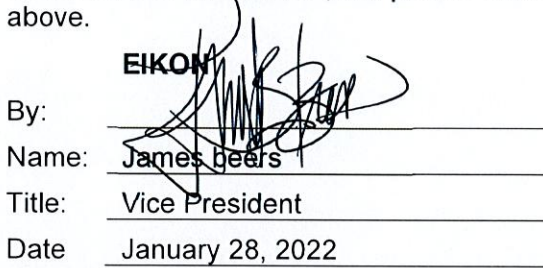 above.
EIKON
By:
Name: James beers
Title: Vice President
Date January 28, 2022